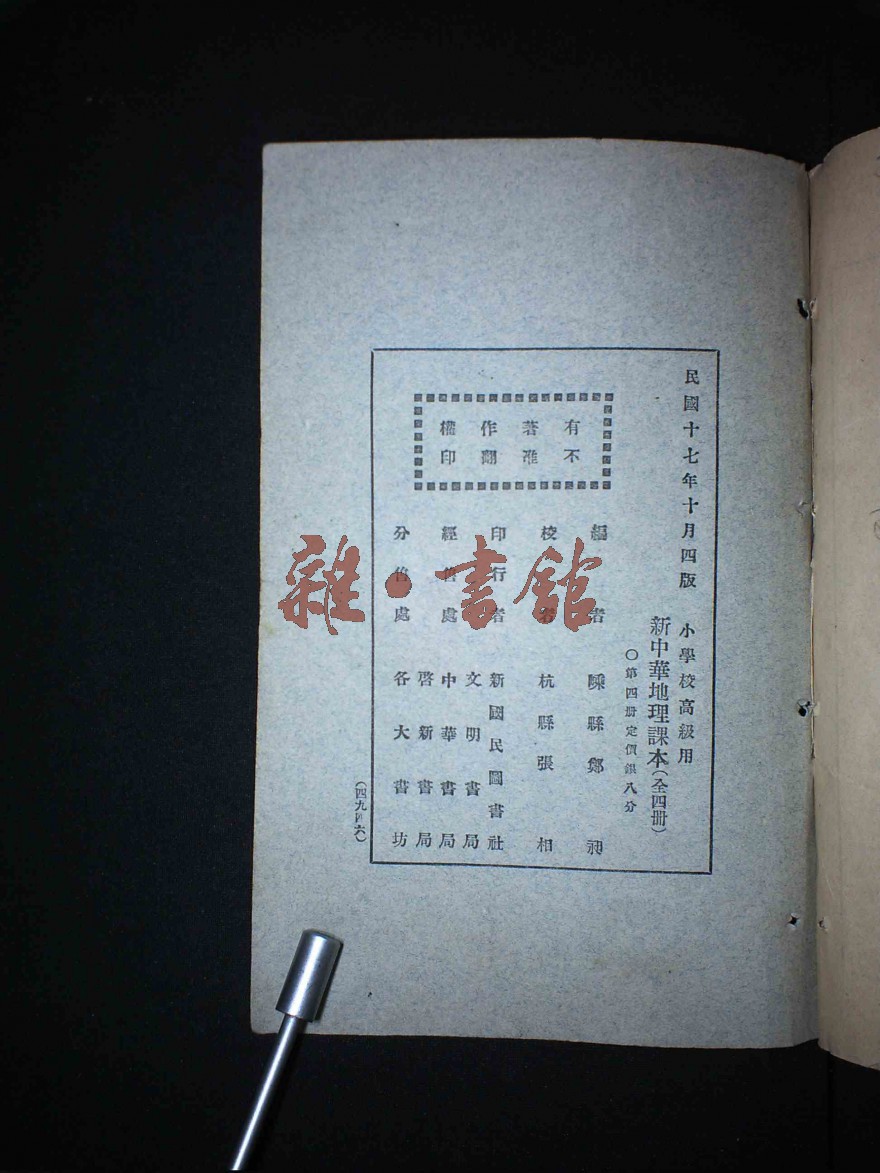 民國十七年十月四版
小學校高級用
新中華地理課本(全四冊)
○第四冊定價銀八分
有著作權
不准翻印
編者 嵊縣鄭昶
校者 杭縣張相
印行者 新國民圖書社
經售處 文明書局
中華書局
啓新書局
分售處 各大書坊
(四九四六)
雜·書館